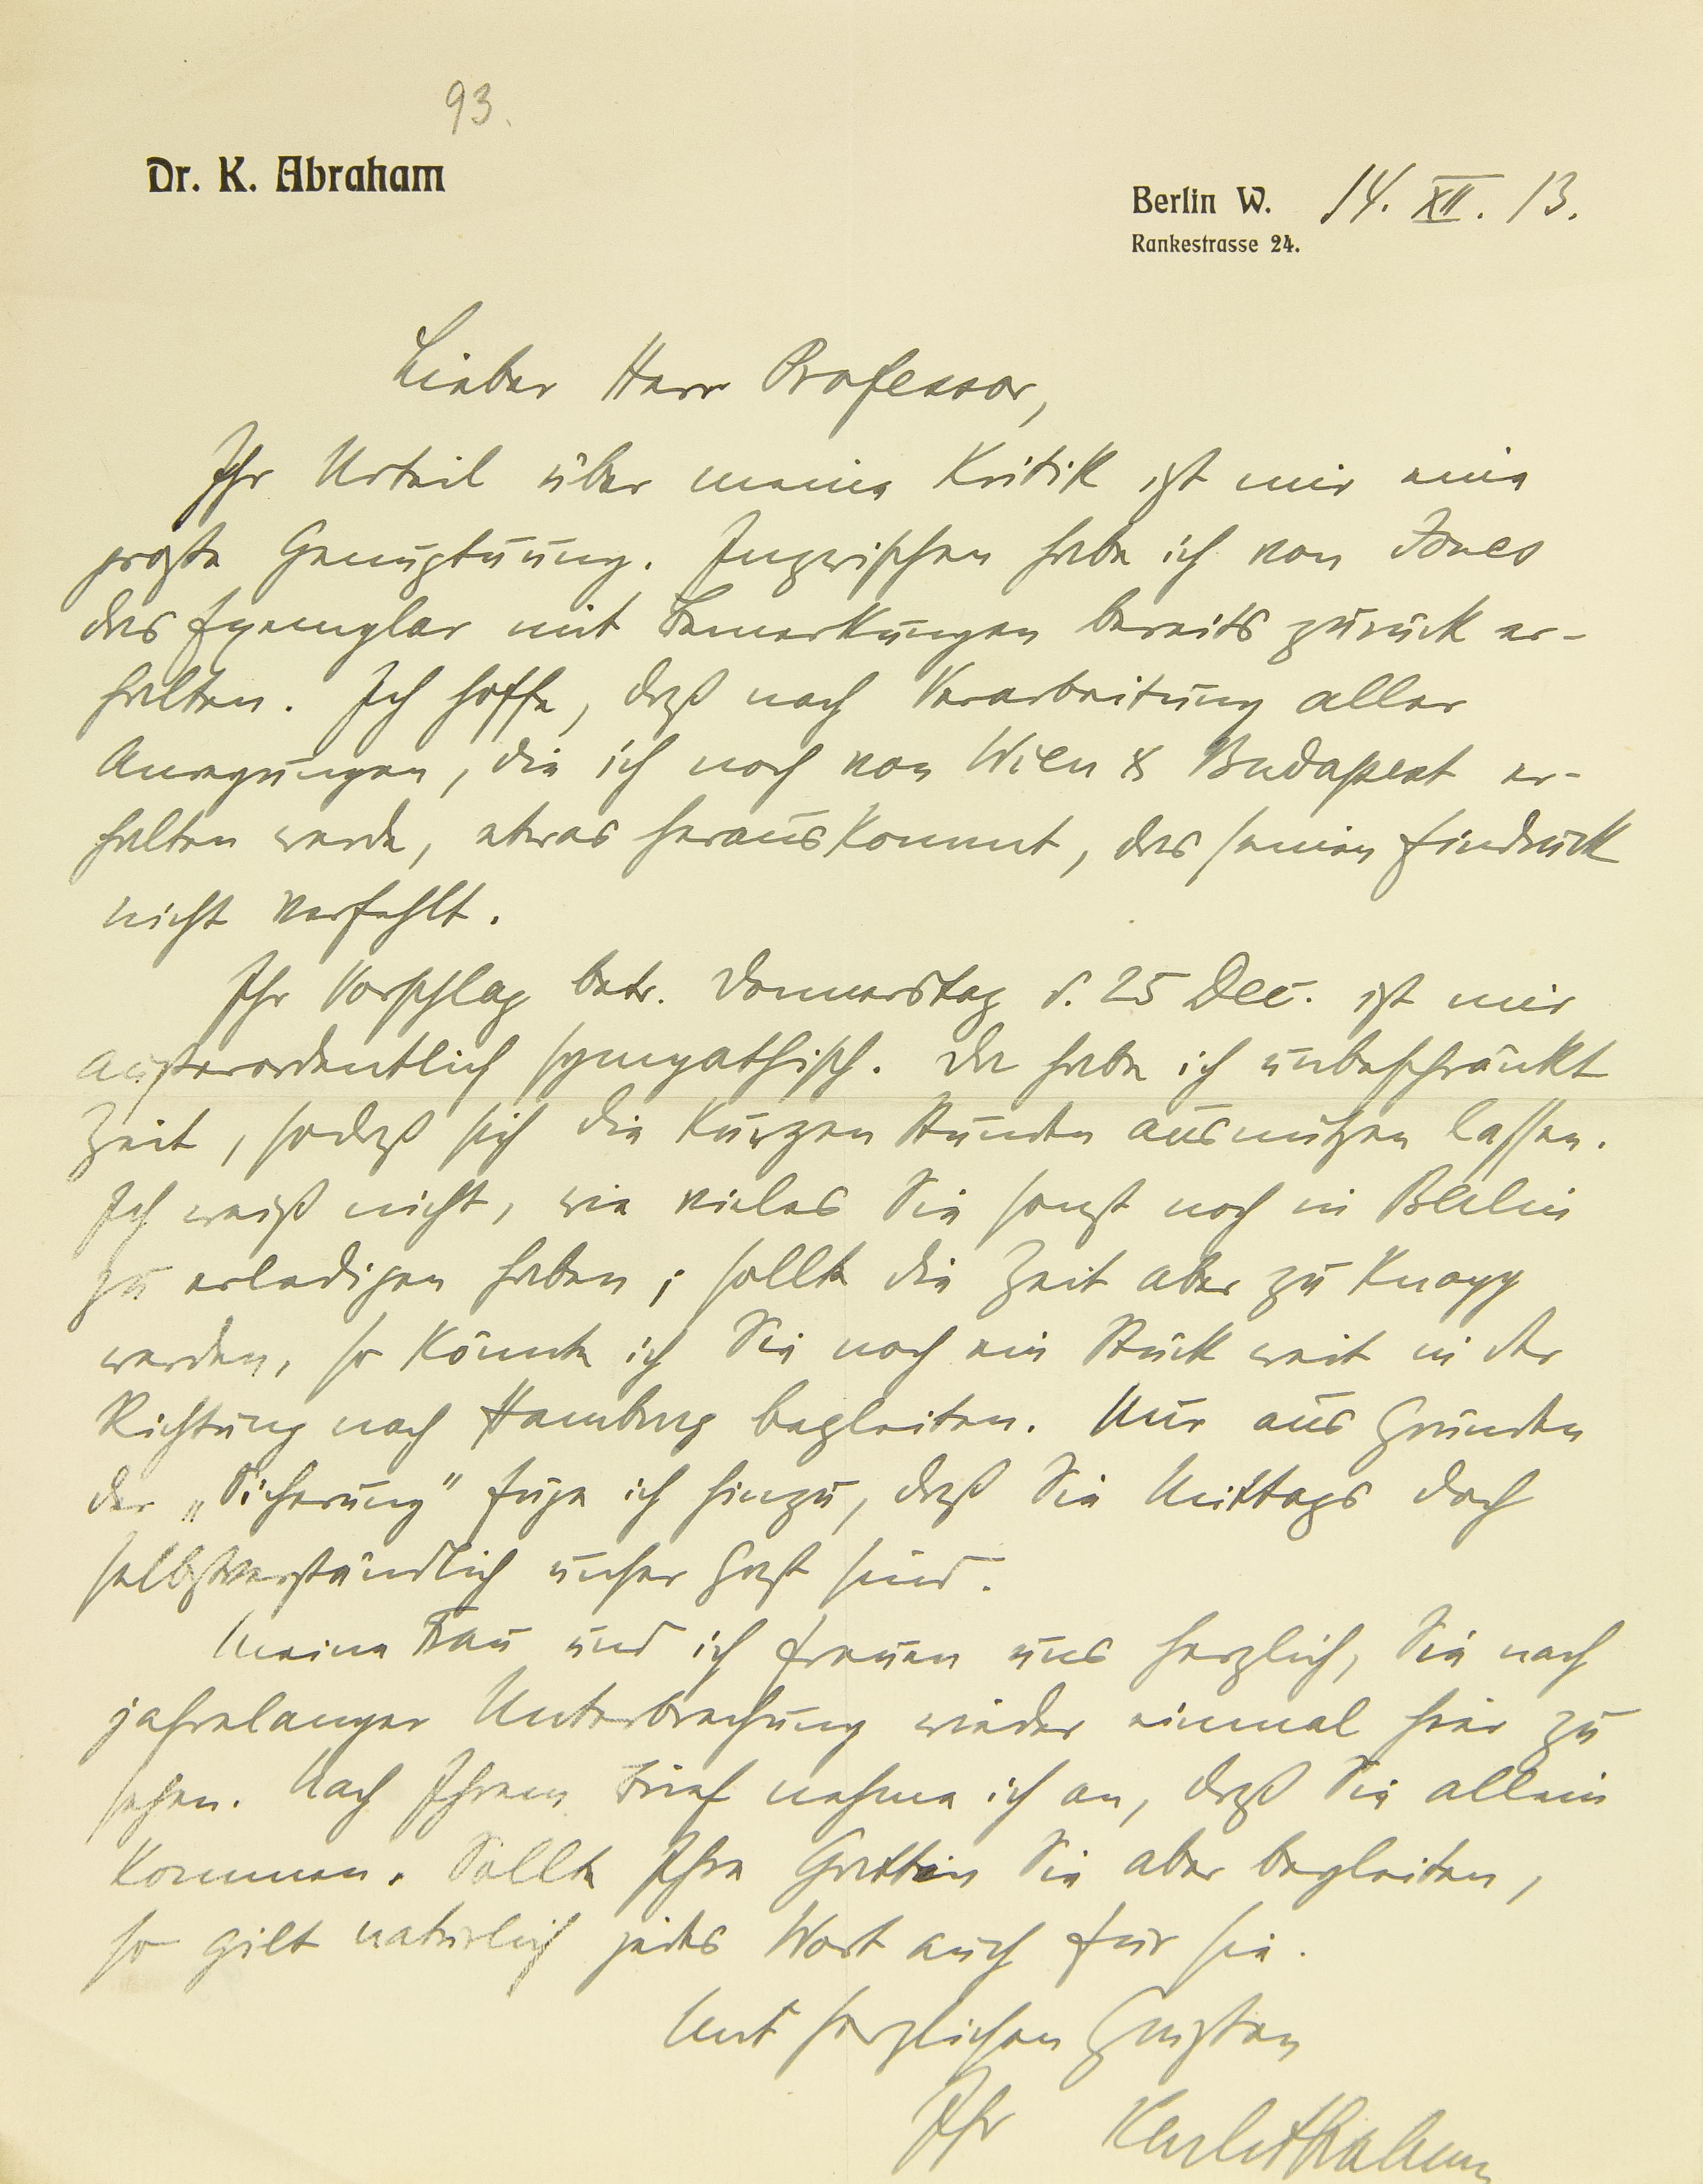 93.
Dr. K. Abraham
Berlin W. 14. XII. 13.
Rankestrasse 24.
Lieber Herr Professor,
Ihr Urteil über meine Kritik ist mir eine
große Genugtuung. Inzwischen habe ich von Jones
das Exemplar mit Bemerkungen bereits zurück er-
halten. Ich hoffe, daß nach Verarbeitung aller
Anregungen, die ich noch von Wien & Budapest er-
halten werde, etwas herauskommt, das seinen Eindruck
nicht verfehlt.
Ihr Vorschlag betr. Donnerstag d. 25 Dec. ist mir
außerordentlich sympathisch. Da habe ich unbeschränkt
Zeit, sodaß sich die kurzen Stunden ausnützen lassen.
Ich weiß nicht, wie vieles Sie sonst noch in Berlin
zu erledigen haben; sollte die Zeit aber zu knapp
werden, so könnte ich Sie noch ein Stück weit in der
Richtung nach Hamburg begleiten. Nur aus Gründen
der „Sicherung" füge ich hinzu, daß Sie Mittags doch
selbstverständlich unser Gast sind.
Meine Frau und ich freuen uns herzlich, Sie nach
jahrelanger Unterbrechung wieder einmal hier zu
sehen. Nach Ihrem Brief nehme ich an, daß Sie allein
kommen. Sollte Ihre Gattin Sie aber begleiten,
so gilt natürlich jedes Wort auch für sie.
Mit herzlichen Grüßen
Ihr Karl Abraham